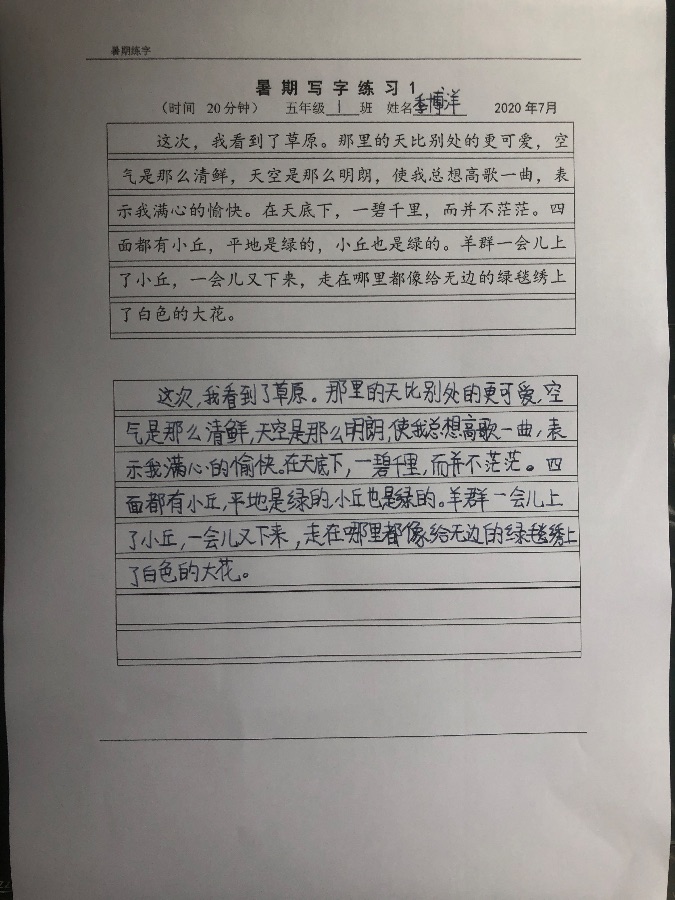 暑期练字
暑期写字练习1
（时间 20分钟） 五年级1班 姓名季博洋 2020年7月
这次，我看到了草原。那里的天比别处的更可爱，空
气是那么清鲜，天空是那么明朗，使我总想高歌一曲，表
示我满心的愉快。在天底下，一碧千里，而并不茫茫。四
面都有小丘，平地是绿的，小丘也是绿的。羊群一会儿上
了小丘，一会儿又下来，走在哪里都像给无边的绿毯绣上
了白色的大花。
这次，我看到了草原。那里的天比别处的更可爱，空
气是那么清鲜，天空是那么明朗，使我总想高歌一曲，表
示我满心的愉快。在天底下，一碧千里，而并不茫茫。四
面都有小丘，平地是绿的，小丘也是绿的。羊群一会儿上
了小丘，一会儿又下来，走在哪里都像给无边的绿毯绣上
了白色的大花。